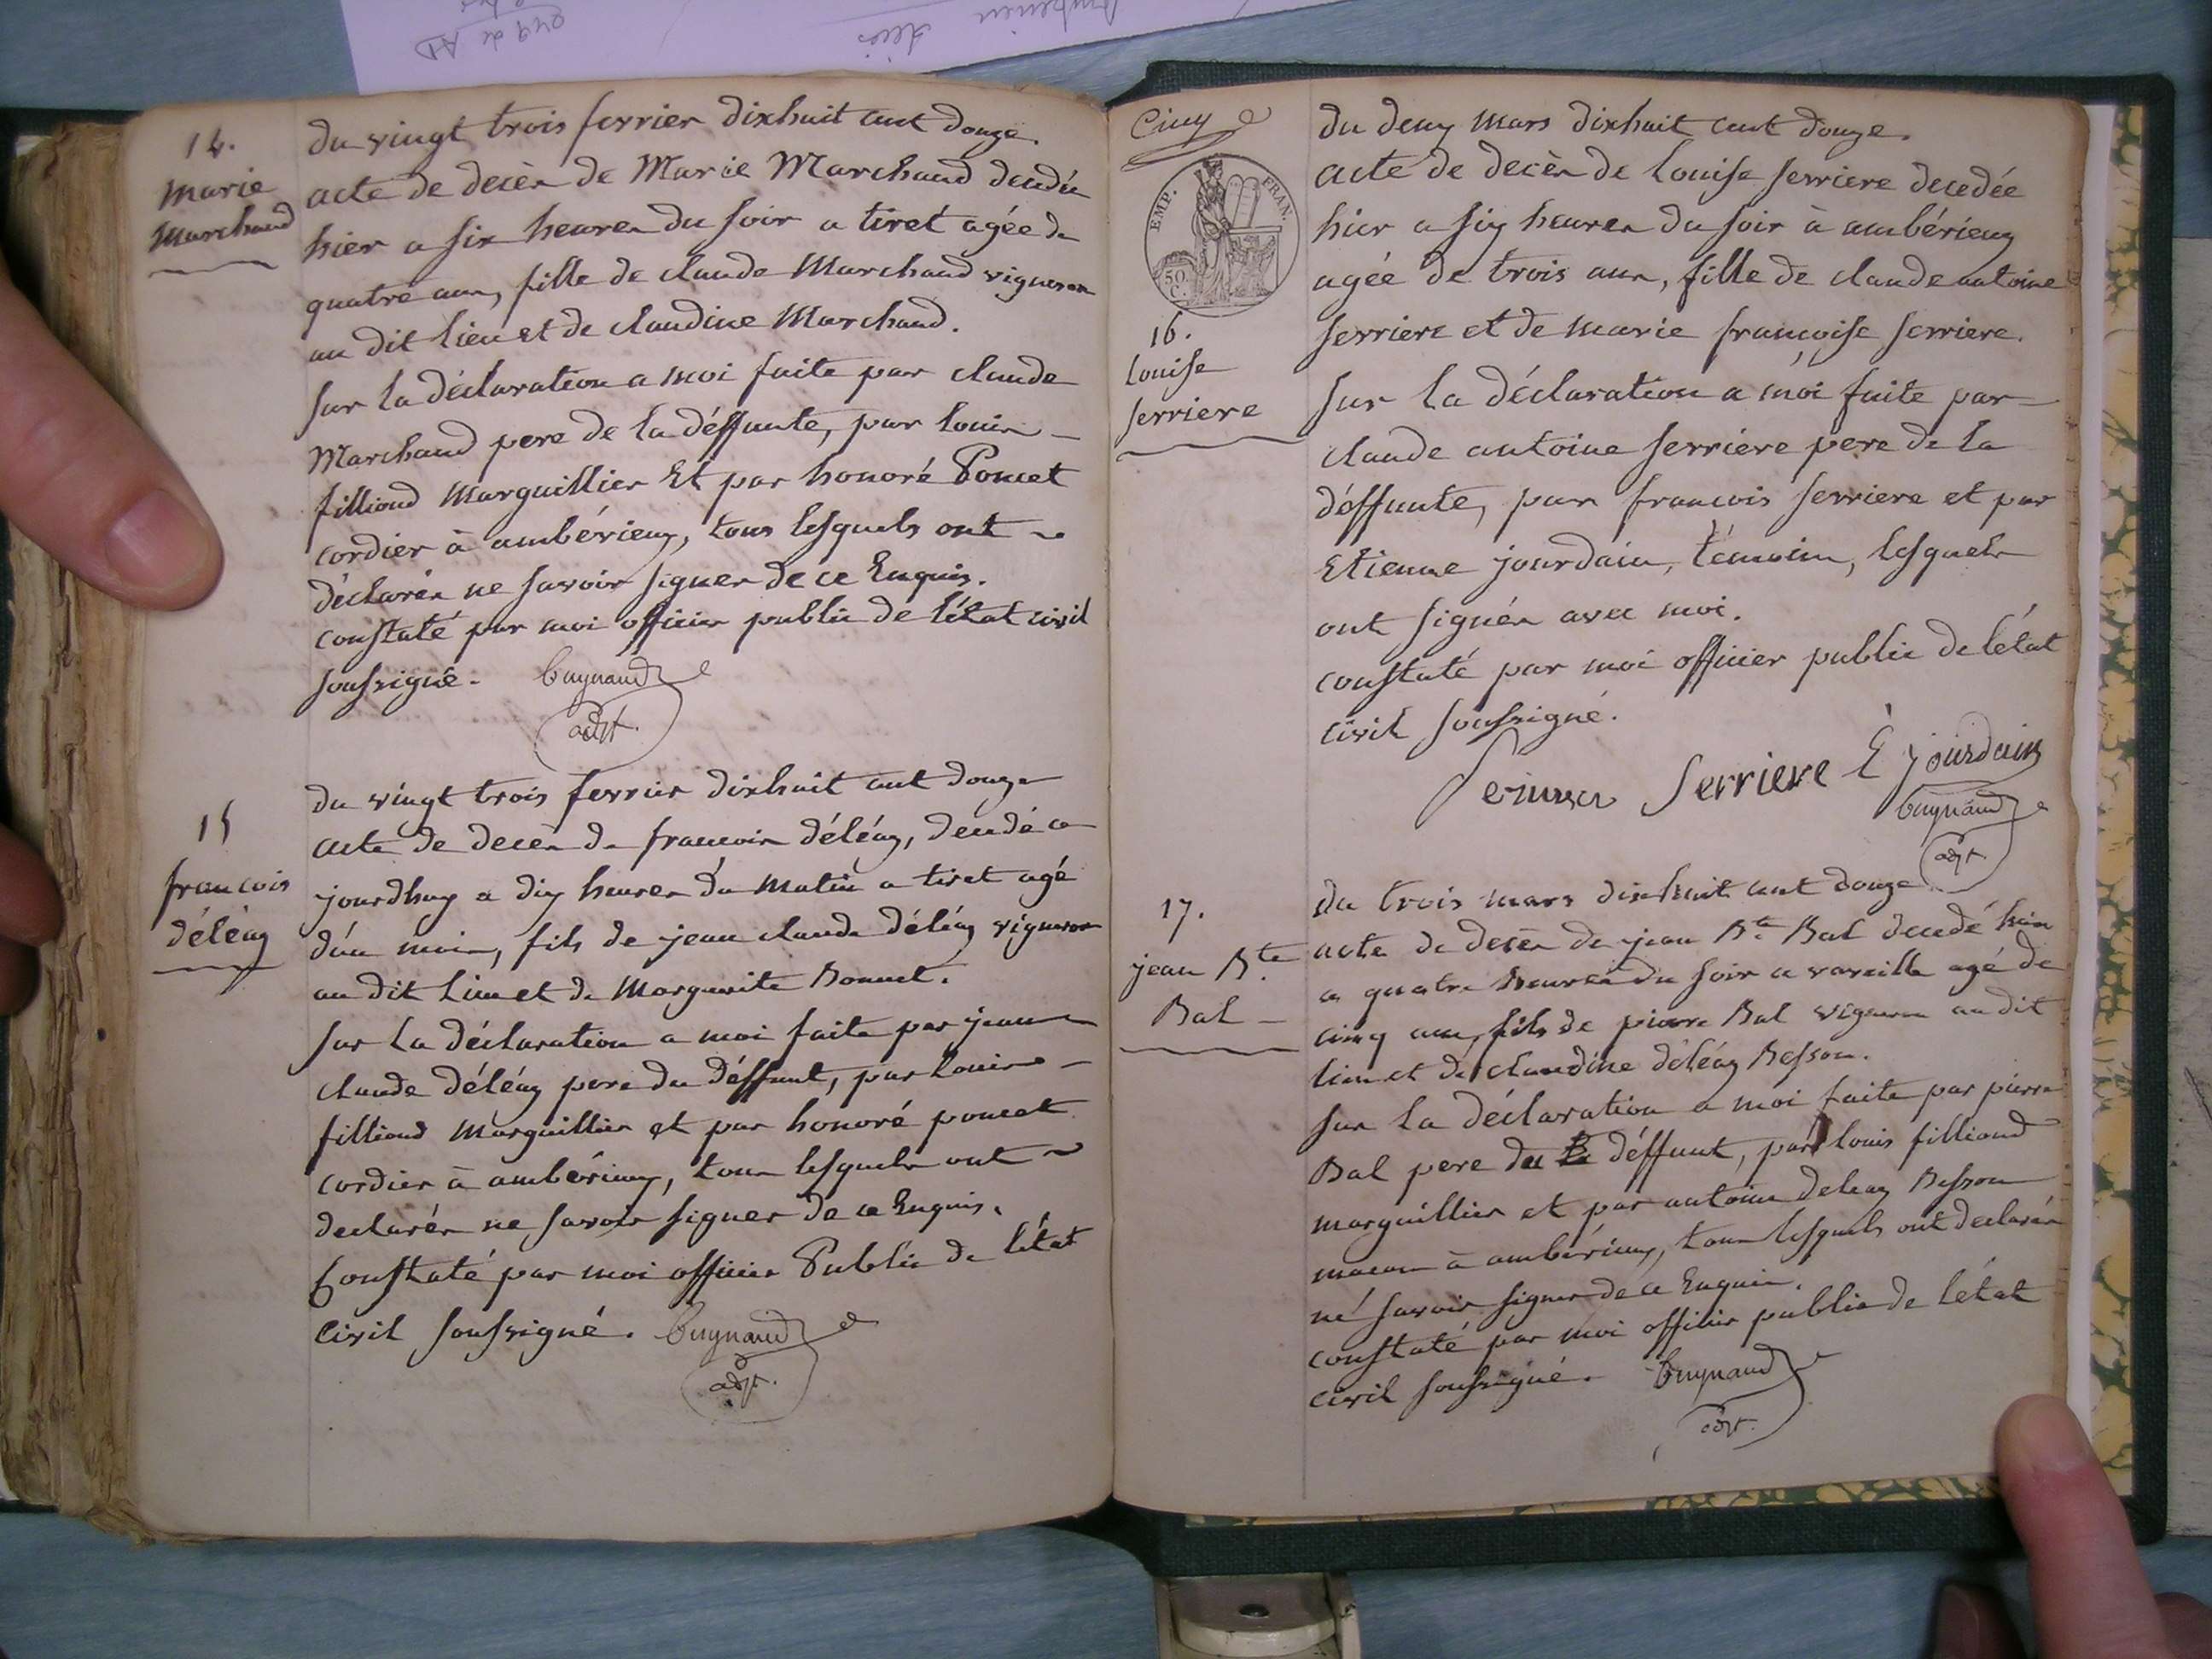 14.
marie
Marchand
du vingt trois fevrier dixhuit cent douze
acte de decès de Marie Marchand decedée
hier a six heures du soir a tiret agée de
quatre ans, fille de claude Marchand vigneron
au dit lieu et de claudine Marchand.
sur la déclaration a moi faite par claude
Marchand pere de la déffunte, par louis
filliond Marguillier Et par honoré Poncet
cordier à ambérieux, tous lesquels ont
déclarés ne savoir signer de ce Enquis.
constaté par moi officier public de l'état civil
soussigné. Cuynaud
adjt.
15
francois
déléaz
du vingt trois fevrier dixhuit cent douze
acte de decès de francois déléaz, decedé ce
jourdhuy a dix heures du matin a tiret agé
d'un mois, fils de jean claude déléaz vigneron
au dit lieu et de Marguerite Bonnet.
sur la déclaration a moi faite par jean
claude déléaz pere du déffunt, par louis
filliond Marguillier et par honoré poncet
cordier à ambérieux, tous lesquels ont
declarés ne savoir signer de ce Enquis.
Constaté par moi officier Public de l'état
civil soussigné. Cuynaud
adjt.
Cinq
EMP. FRAN.
50 C.
16.
louise
serriere
du deux mars dixhuit cent douze.
acte de decès de louise serriere decedée
hier a six heures du soir à ambérieux
agée de trois ans, fille de claude antoine
serriere et de marie francoise serriere.
sur la déclaration a moi faite par
claude antoine serriere pere de la
déffunte, par francois serriere et par
Etienne jourdain, témoins, lesquels
ont signés avec moi.
constaté par moi officier public de l'état
civil soussigné.
serriere E jourdain
Cuynaud
adjt.
17.
jean Bte
Bal
du trois mars dixhuit cent douze
acte de decès de jean Bte Bal decedé hier
a quatre heures du soir a vareille agé de
cinq ans, fils de pierre Bal vigneron au dit
lieu et de claudine déléaz Besson.
sur la déclaration a moi faite par pierre
Bal pere du déffunt, par louis filliond
marguillier et par antoine deleaz Besson
macon à ambérieux, tous lesquels ont declarés
ne savoir signer de ce Enquis.
constaté par moi officier public de l'état
civil soussigné. Cuynaud
adjt.